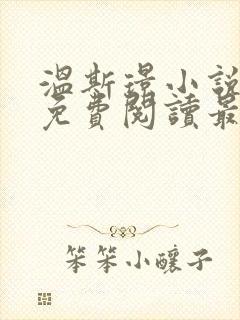 溫斯璟小說
免費閱讀最
笨笨小釀子